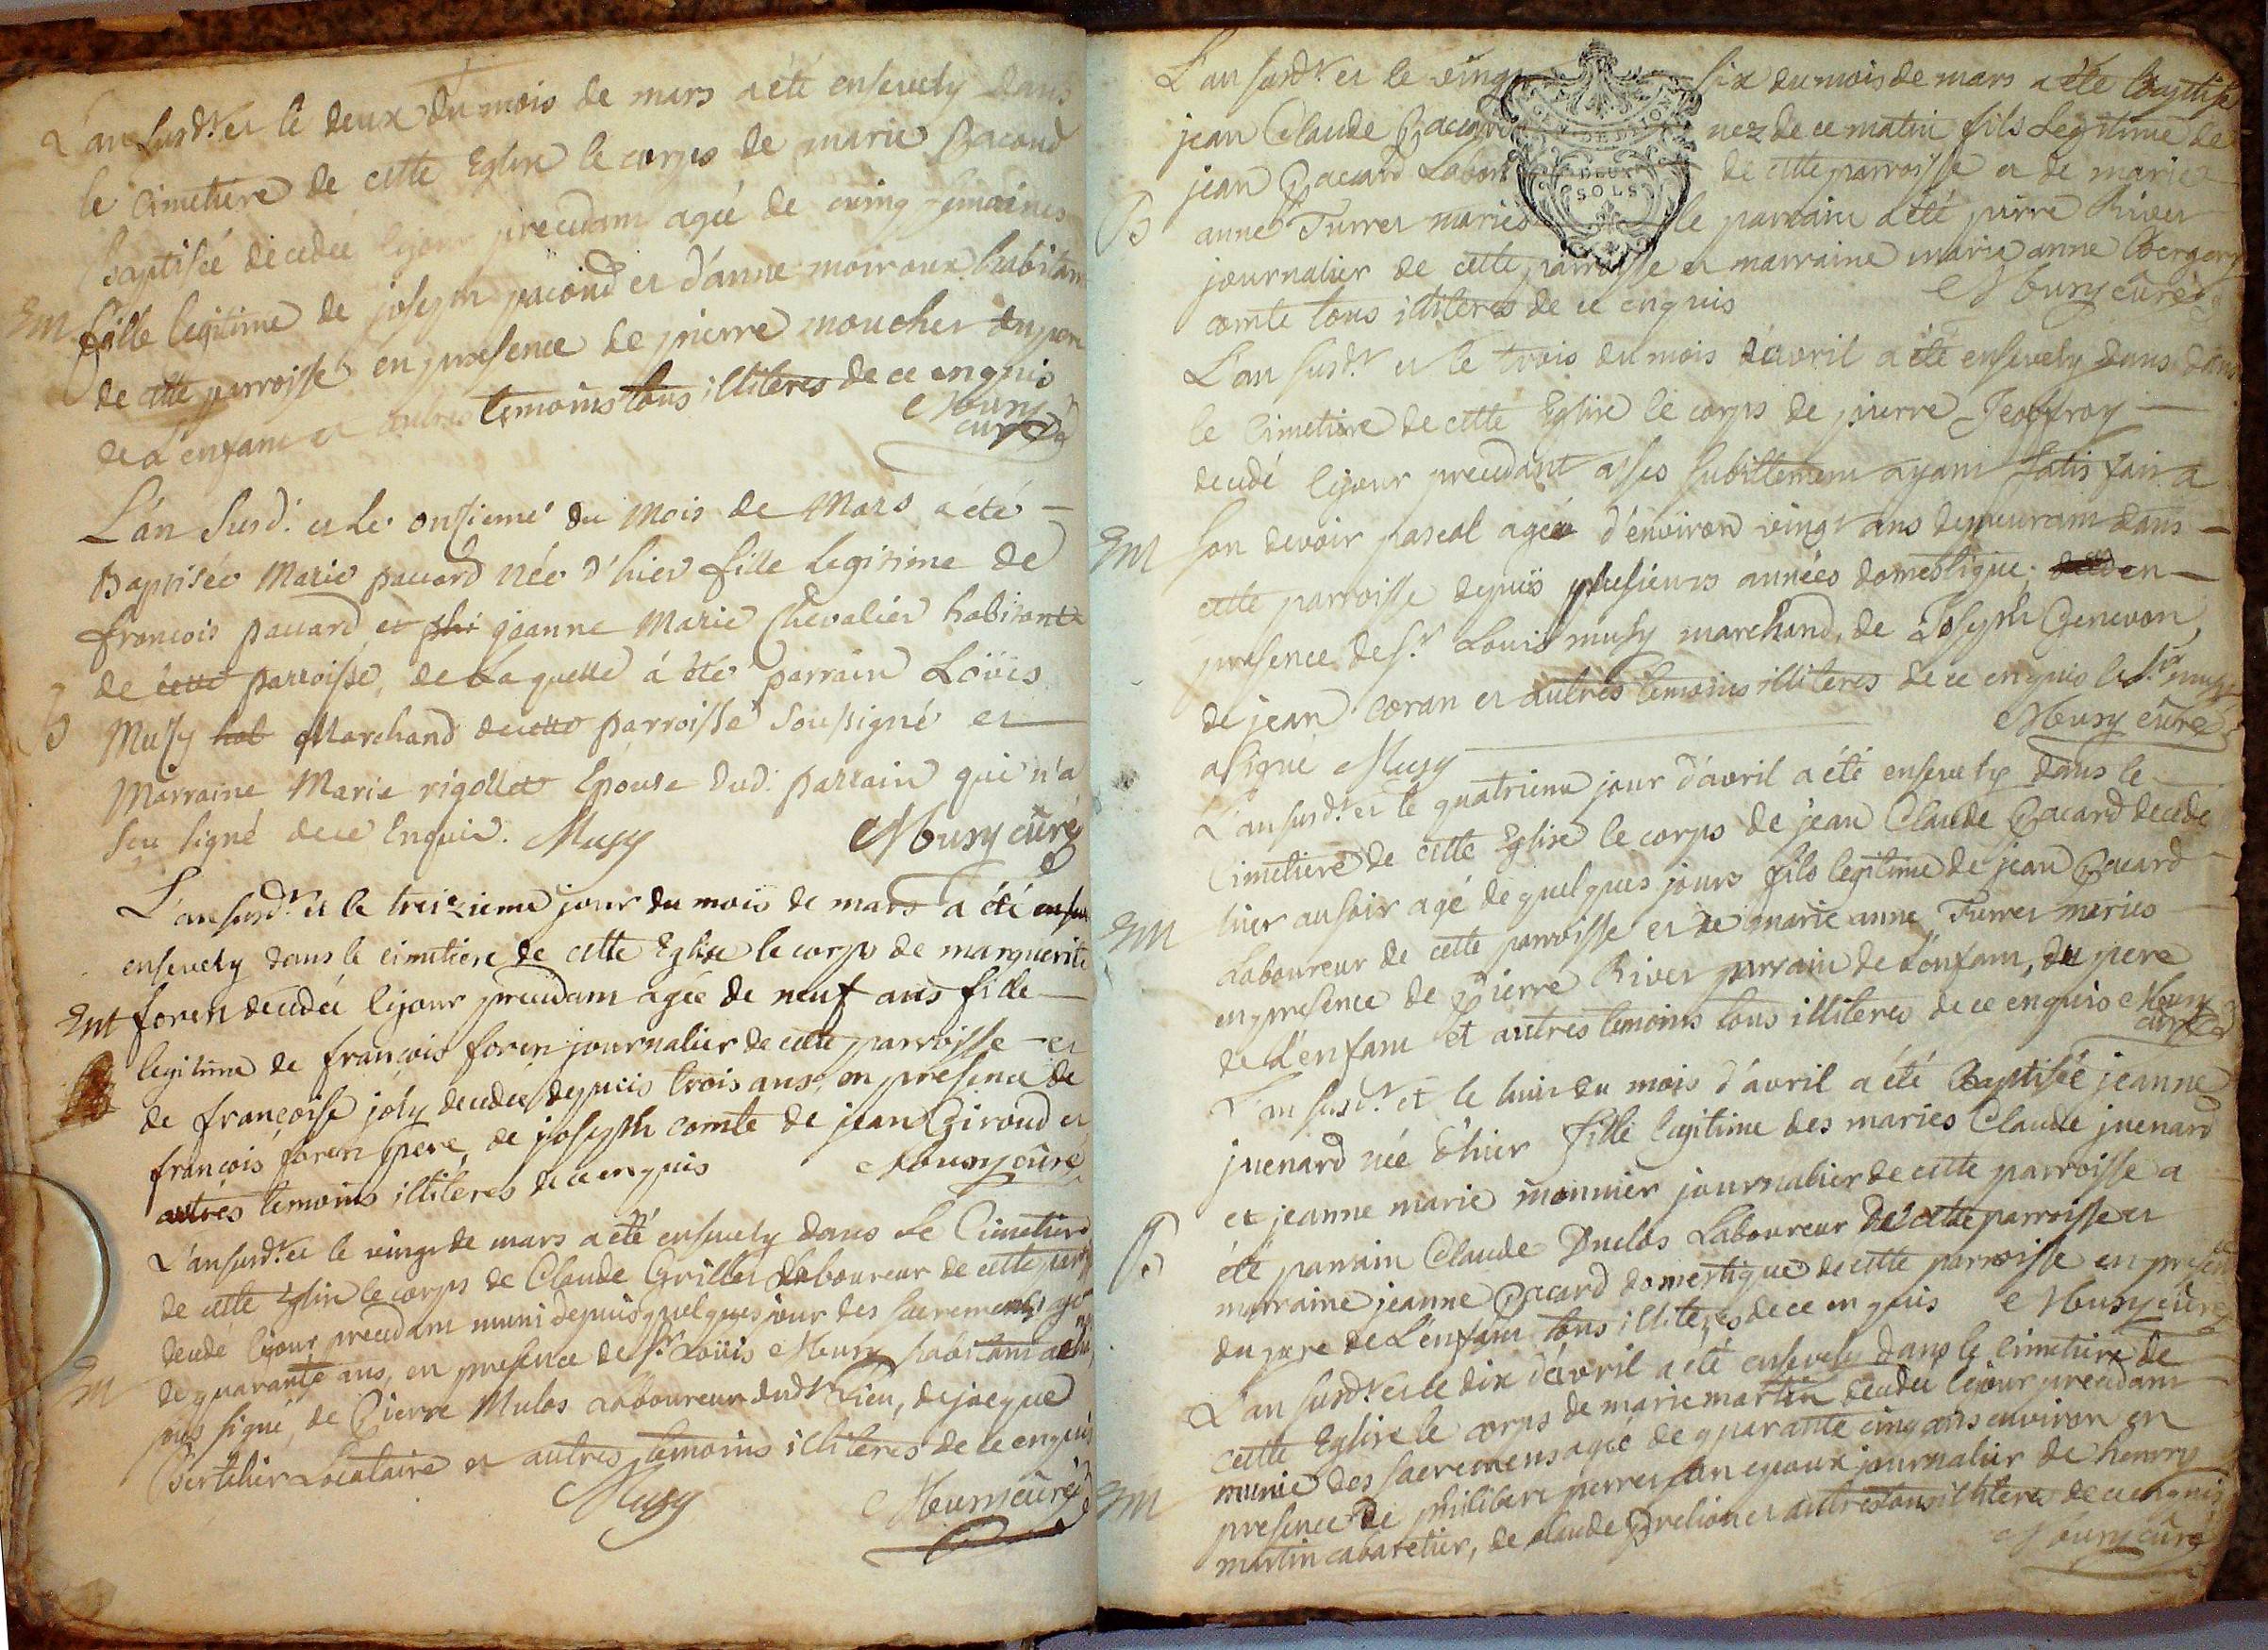 L'an susdt et le deux du mois de mars a été ensevely dans
le Cimetiere de cette Eglise le corps de marie Pacoud
Baptisée decedée le jour precedam agée de cinq semaines
Em fille legitime de joseph pacoud et d'anne moiroux habitam
de cette parroisse, en presence de pierre moucher du pere
de L'enfam et autres temoins tous illiteres de ce enquis
Mousy
curé
L'an Susd. et Le onsieme du Mois de Mars a été
Baptisée Marie paccard née d'hier fille Legitime de
francois paccard et phi jeanne Marie Chevalier habitants
de cette parroisse, de Laquelle á été parrain Loüis
B Musy hab Marchand de cette parroisse Soussigné et
Marraine Marie rigollet Epouse dud. parrain qui n'a
sçu signé de ce Enquis. Musy Mousy curé
L'an susdt et le treizieme jour du mois de mars a été ensev
ensevely dans le cimetiere de cette Eglise le corps de marguerite
Em foren decedée le jour precedam agée de neuf ans fille
legitime de françois foren journalier de cette parroisse et
de françoise joly decedée depuis trois ans, en presence de
françois foren pere, de joseph comte de jean Giroud et
autres temoins illiteres de ce enquis Mousy curé
L'an susdt et le vingt de mars a été ensevely dans le Cimetiere
de cette Eglise le corps de Claude Grillet Laboureur de cette parr
decedé le jour precedam muni depuis quelques jour des sacremens agé
Em de quarante ans, en presence de sr Loüis Musy habitam
sous signé, de Pierre Mulos Laboureur dudt Lieu, de jacque
Bertelier Locataire et autres temoins illiteres de ce enquis
Musy Mousy curé
L'an susdt et le vingt six du mois de mars a été Baptisé
jean Claude Pacard nez de ce matin fils Legitime de
jean Pacard Labou de cette parroisse et de marie
B anne Furret mariés le parrain a été pierre River
GEN. DE DIJON
DEUX
SOLS
journalier de cette parroisse et marraine marie anne Bergery
comte tous illiteres de ce enquis Mousy curé
L'an susdt et le trois du mois d'avril a été ensevely dans dans
le Cimetiere de cette Eglise le corps de pierre Jeoffroy
decedé le jour precedant assés subittement ayam satisfait a
Em son devoir pascal agée d'environ vingt ans demeuram dans
cette parroisse depuis plusieurs années domestique. en
presence de sr Louis musy marchand, de Joseph Genevon,
de jean coran et autres temoins illiteres de ce enquis le sr musy
a signé Musy Mousy curé
L'an susdt et le quatrieme jour d'avril a été ensevely dans le
Cimetiere de cette Eglise le corps de jean Claude Pacard decedé
hier au soir agé de quelques jours fils legitime de jean Pacard
Em Laboureur de cette parroisse et de marie anne Furret mariés
en presence de Pierre River parrain de L'enfam, du pere
de L'enfam et autres temoins tous illiteres de ce enquis Mousy
curé
L'an susdt et le huit du mois d'avril a été Baptisée jeanne
juenard née d'hier fille legitime des mariés Claude juenard
et jeanne marie monnier journalier de cette parroisse a
B été parrain Claude Duclos Laboureur de cette parroisse et
marraine jeanne Pacard domestique de cette parroisse en presence
du pere de L'enfam tous illiteres de ce enquis Mousy curé
L'an susdt et le dix d'avril a été ensevely dans le cimetiere de
cette Eglise le corps de marie martin decedée le jour precedam
munie des sacremens agée de quarante cinq ans environ en
Em presence de philibert perret journalier de henry
martin cabaretier, de claude Prelion et autres tous illiteres de ce enquis
Mousy curé